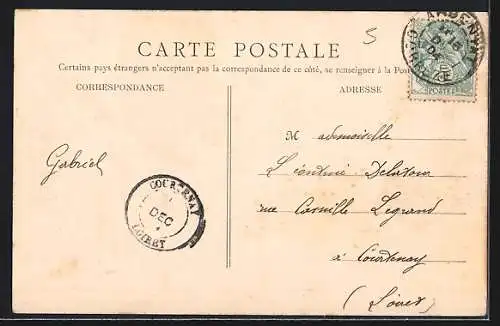 5
CARTE POSTALE
Certains pays étrangers n'acceptant pas la correspondance de ce côté, se renseigner à la Pos
CORRESPONDANCE
ADRESSE
Mademoiselle
Léontine Delatour
rue Camille Legrand
à Courtenay
(Loiret)
Gabriel
COURTENAY
DEC
LOIRET